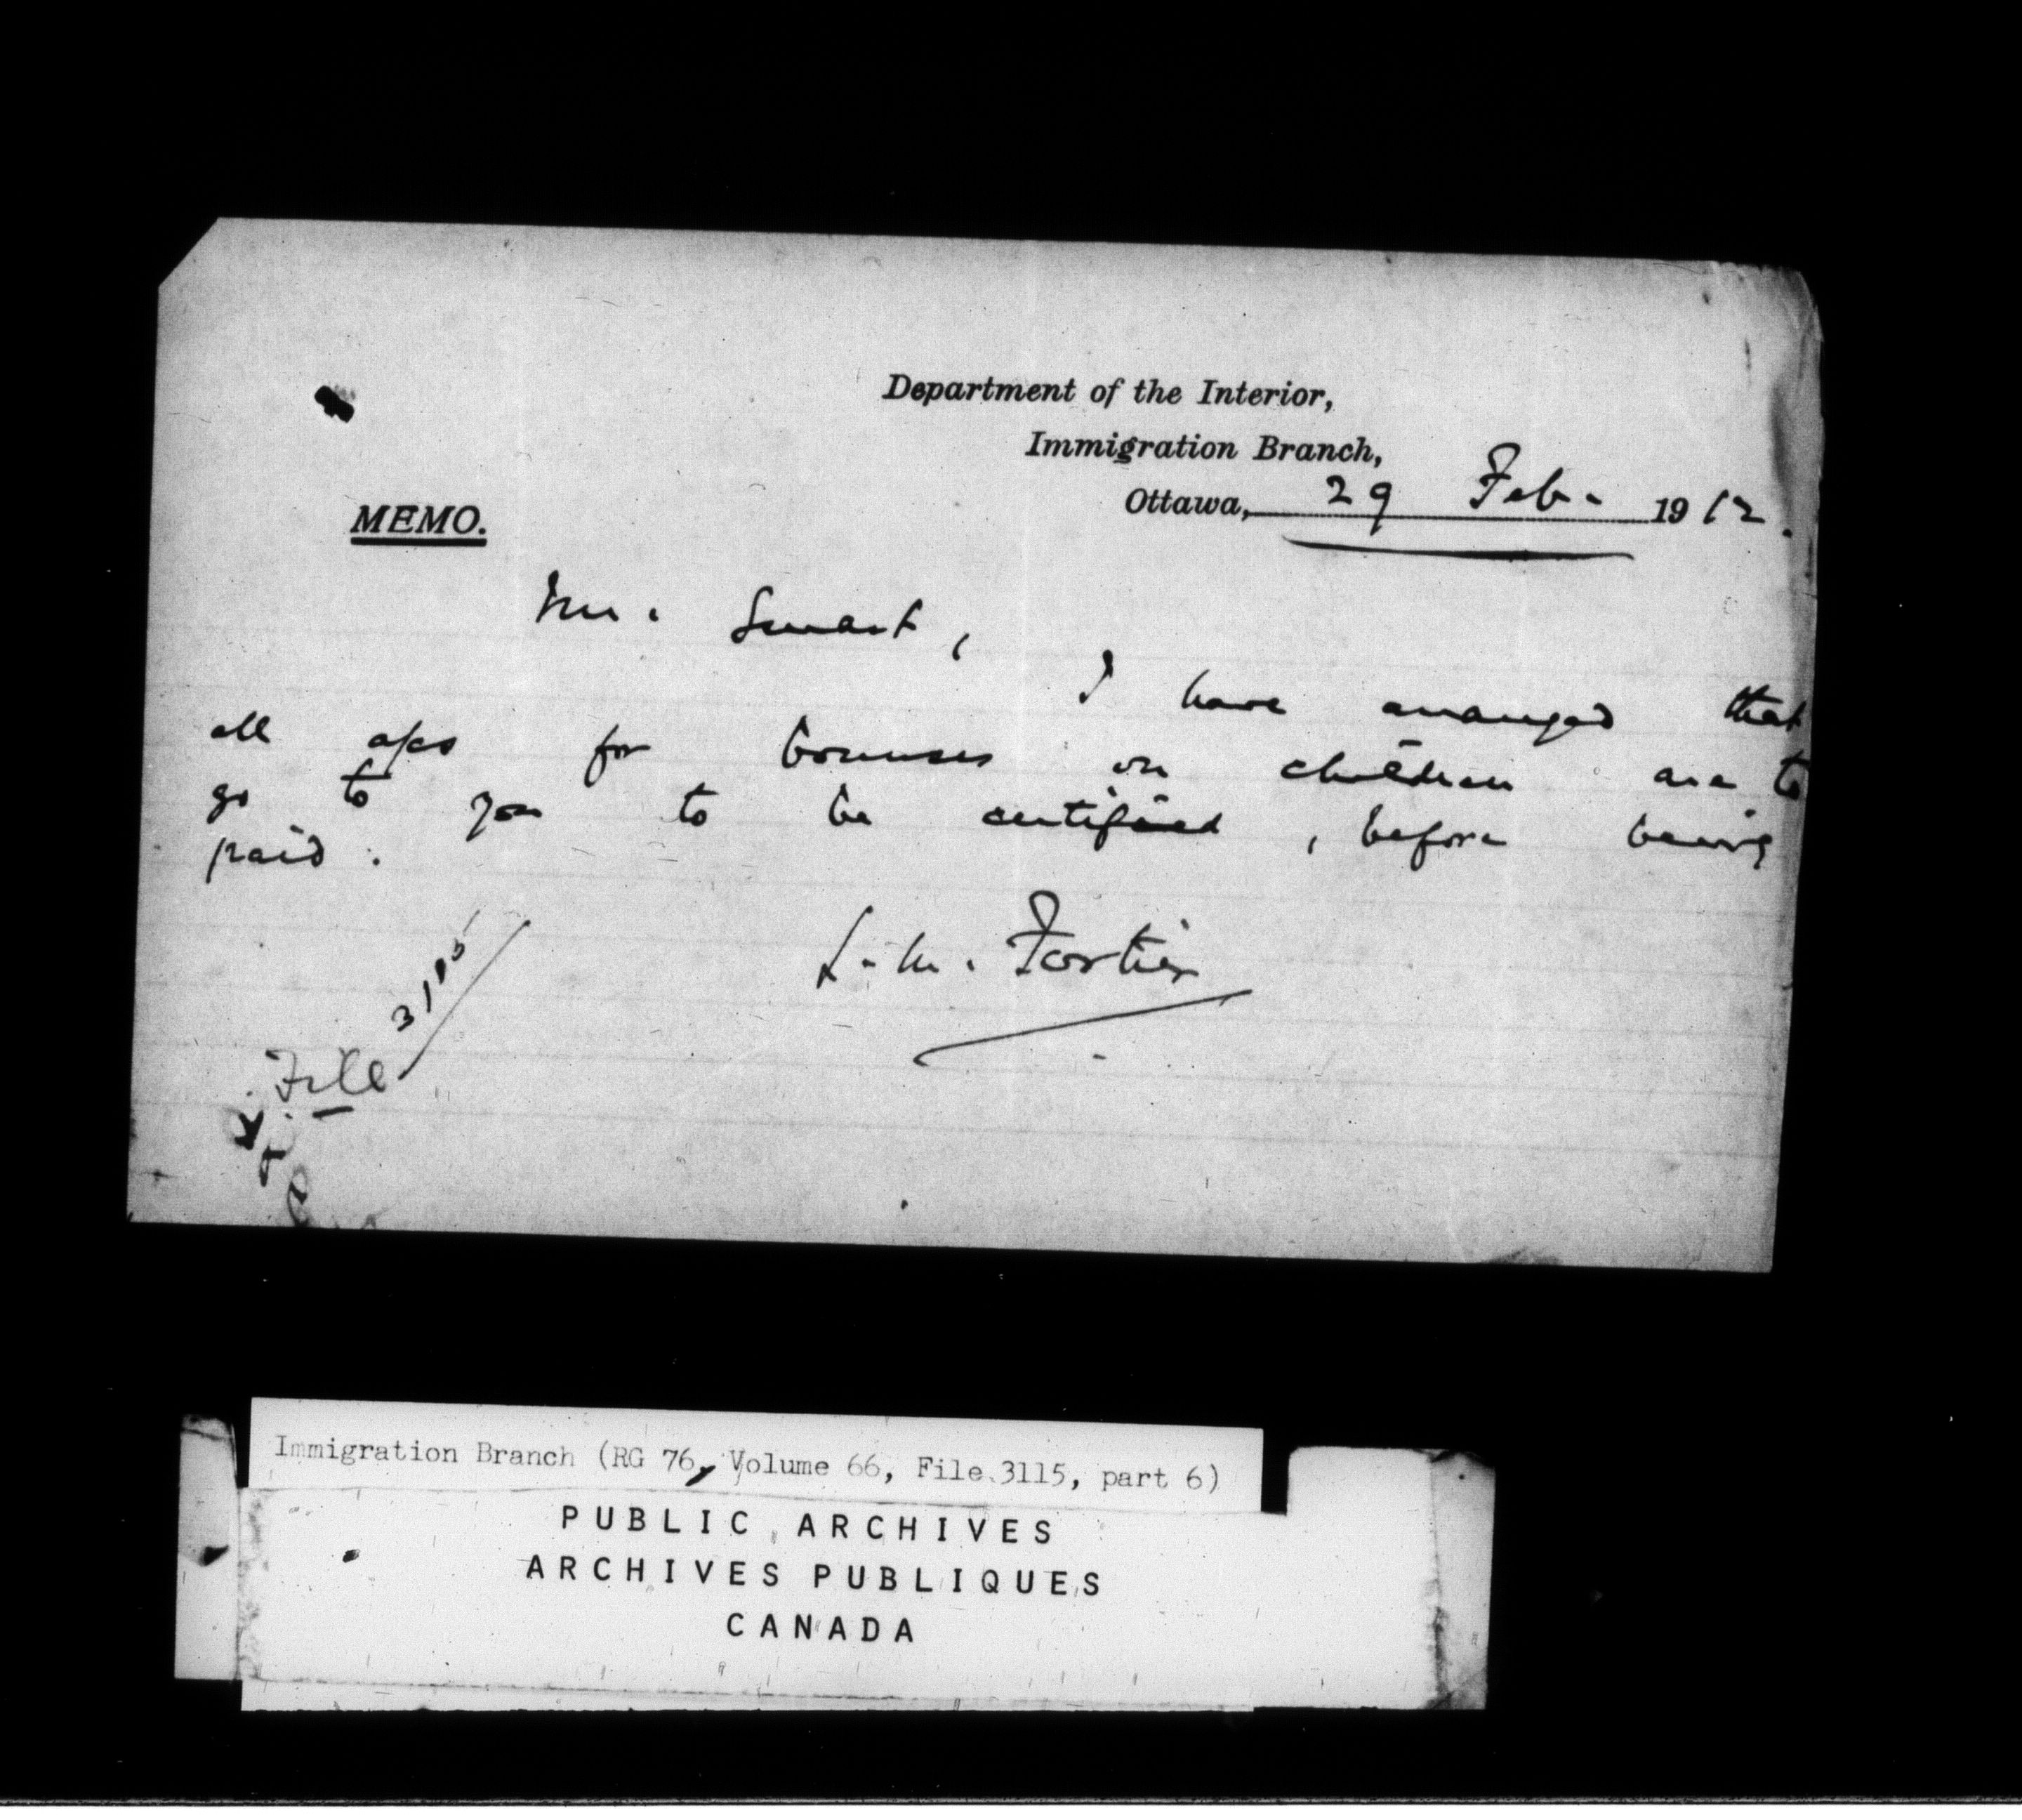 Department of the Interior,
Immigration Branch,
Ottawa, 29 Feb. 1912.
MEMO.
Mr. Smart,
I have arranged that
all a/cs for bonuses on children are to
go to you to be certified, before being
paid.
L. M. Fortier
File 3115
Immigration Branch (RG 76, Volume 66, File 3115, part 6)
PUBLIC ARCHIVES
ARCHIVES PUBLIQUES
CANADA